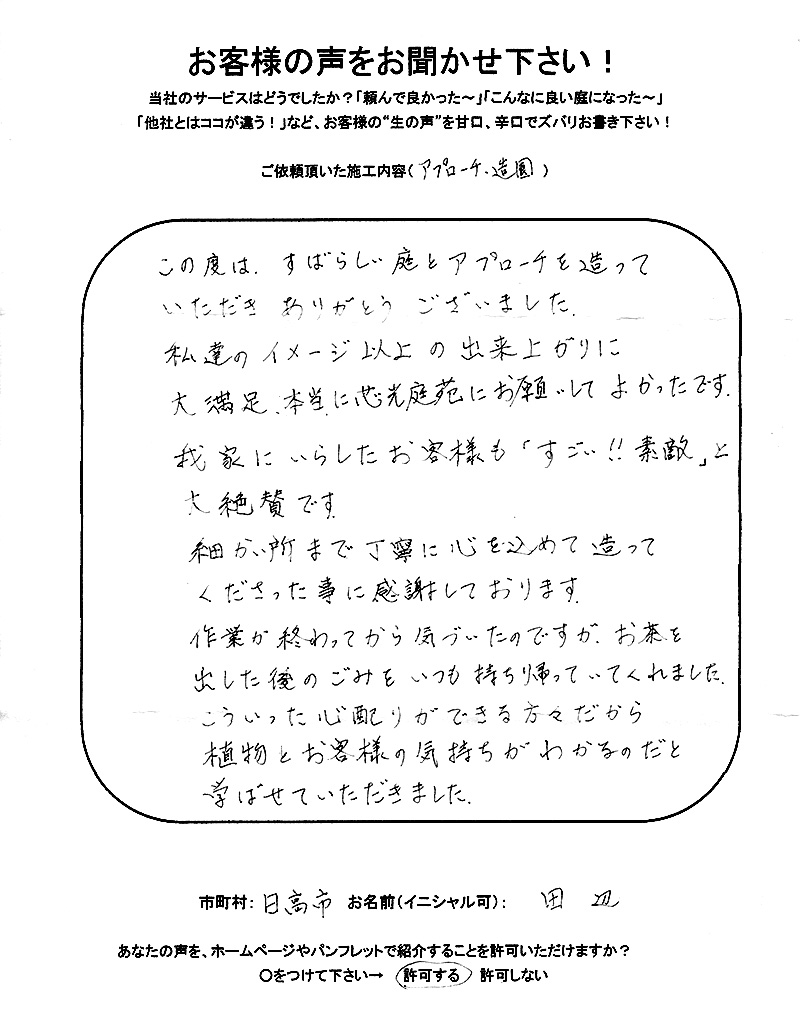 お客様の声をお聞かせ下さい！
当社のサービスはどうでしたか？「頼んで良かった～」「こんなに良い庭になった～」
「他社とはココが違う！」など、お客様の“生の声”を甘口、辛口でズバリお書き下さい！
ご依頼頂いた施工内容（アプローチ、造園）
この度は、すばらしい庭とアプローチを造って
いただき ありがとう ございました。
私達の イメージ 以上 の 出来上がりに
大満足、本当に芯光庭苑にお願いして よかったです。
我家に いらした お客様も「すごい!! 素敵」と
大絶賛です
細かい所まで 丁寧に 心を込めて 造って
くださった事に感謝しております。
作業が 終わってから 気づいたのですが、お茶を
出した後の ごみを いつも 持ち帰っていてくれました。
こういった 心配りができる方々だから
植物とお客様の気持ちがわかるのだと
学ばせていただきました。
市町村：日高市 お名前（イニシャル可）： 田辺
あなたの声を、ホームページやパンフレットで紹介することを許可いただけますか？
〇をつけて下さい→ 許可する 許可しない